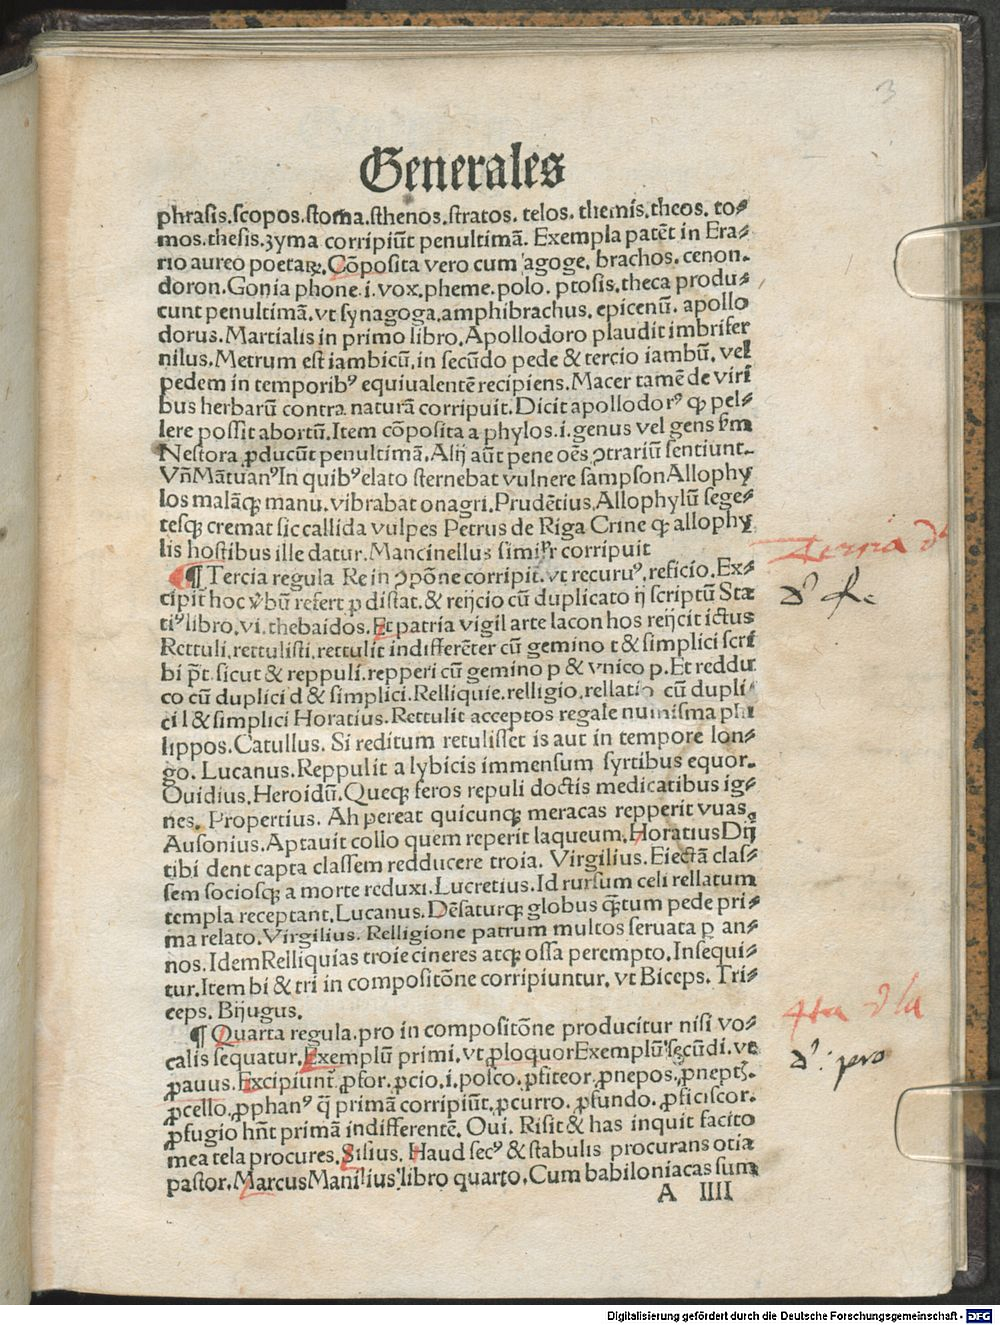 3
Generales
phrasis.scopos.stoma.sthenos.stratos. telos. themis.theos. to⸗
mos.thesis.zyma corripiūt penultimā. Exempla patēt in Era⸗
rio aureo poetaꝝ. Cōposita vero cum agoge. brachos. cenon.
doron. Gonia phone.i.vox.pheme.polo. ptosis.theca produ⸗
cunt penultimā.vt synagoga.amphibrachus. epicenū. apollo
dorus.Martialis in primo libro.Apollodoro plaudit imbrifer
nilus.Metrum est iambicū.in secūdo pede & tercio iambū. vel
pedem in temporibꝰ equiualentē recipiens.Macer tamē de viri
bus herbarū contra naturā corripuit.Dicit apollodorꝰ ꝙ pel⸗
lere possit abortū.Item cōposita a phylos.i.genus vel gens ẜm
Nestora ꝓducūt penultimā.Alij aūt pene oēs ꝯtrariū sentiunt.
Vn̄ Mātuanꝰ In quibꝰ elato sternebat vulnere sampson Allophy
los malāqꝫ manu. vibrabat onagri. Prudētius. Allophylū sege⸗
tesqꝫ cremat sic callida vulpes Petrus de Riga Crine ꝙ allophy
lis hostibus ille datur. Mancinellus simil̄r corripuit
¶ Tercia regula Re in ꝯpōne corripit. vt recuruꝰ.reficio. Ex⸗
cipit̄ hoc v̄bū refert ꝓ distat. & reijcio cū duplicato ij scriptū Sta
tiꝰ libro.vi.thebaidos. Et patria vigil arte lacon hos reijcit ictus
Rettuli.rettulisti.rettulit indifferēter cū gemino t & simplici scri
bi pn̄t. sicut & reppuli.repperi cū gemino p & vnico p. Et reddu
co cū duplici d & simplici. Relliquie.relligio.rellatio cū dupli
ci l & simplici Horatius. Rettulit acceptos regale numisma phi
lippos. Catullus. Si reditum retulisset is aut in tempore lon⸗
go. Lucanus. Reppulit a lybicis immensum syrtibus equor.
Ouidius. Heroidū. Queqꝫ feros repuli doctis medicatibus ig⸗
nes. Propertius. Ah pereat quicunqꝫ meracas repperit vuas.
Ausonius. Aptauit collo quem reperit laqueum. Horatius Dij
tibi dent capta classem redducere troia. Virgilius. Eiectā clas⸗
sem sociosqꝫ a morte reduxi. Lucretius. Id rursum celi rellatum
templa receptant. Lucanus. Dēsaturqꝫ globus q̄tum pede pri⸗
ma relato. Virgilius. Relligione patrum multos seruata ꝑ an⸗
nos. Idem Relliquias troie cineres atqꝫ ossa perempto. Insequi⸗
tur. Item bi & tri in compositōne corripiuntur. vt Biceps. Tri⸗
ceps. Bijugus.
¶ Quarta regula. pro in compositōne producitur nisi vo⸗
calis sequatur. Exemplū primi. vt ꝓloquor Exemplū secūdi. vt
ꝓauus. Excipiunt̄ ꝓfor. ꝓcio.i.posco. ꝓfiteor. ꝓnepos. ꝓneptꝭ.
ꝓcello. ꝓphanꝰ q̄ primā corripiūt. ꝓcurro. ꝓfundo. ꝓficiscor.
ꝓfugio hn̄t primā indifferentē. Oui. Risit & has inquit facito
mea tela procures. Silius. Haud secꝰ & stabulis procurans otia
pastor. Marcus Manilius libro quarto. Cum babiloniacas sum
A IIII
Tercia
4ta
pro
Digitalisierung gefördert durch die Deutsche Forschungsgemeinschaft - DFG